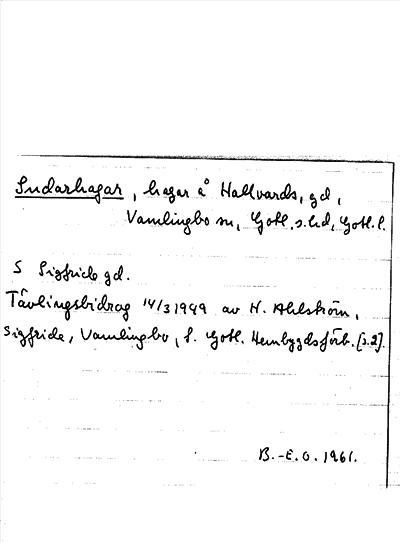 Sudarhagar, hagar å Hallvards, gd,
Vamlingbo sn, Gotl. s. hd, Gotl. l.
S Sigfrids gd.
Tävlingsbidrag 14/3 1949 av H. Ahlström,
Sigfride, Vamlingbo, f. Gotl. Hembygdsförb. [s.2].
B.-E.O. 1961.